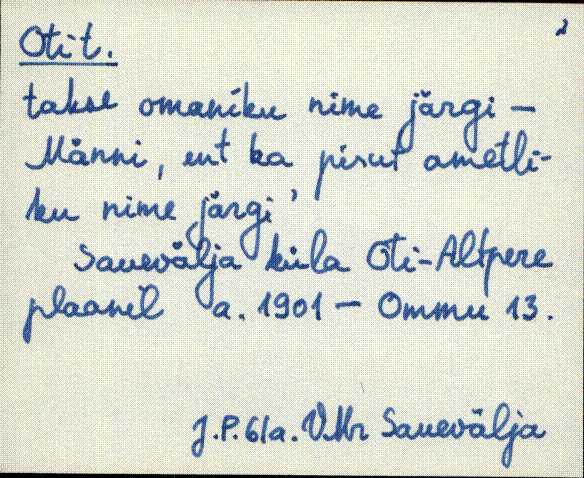 2
Oti t.
takse omaniku nime järgi –
Männi, ent ka pisut ametli-
ku nime järgi'
Sauevälja küla Oti-Altpere
plaanil a. 1901 – Ommu 13.
J.P. 61a. VMr Sauevälja